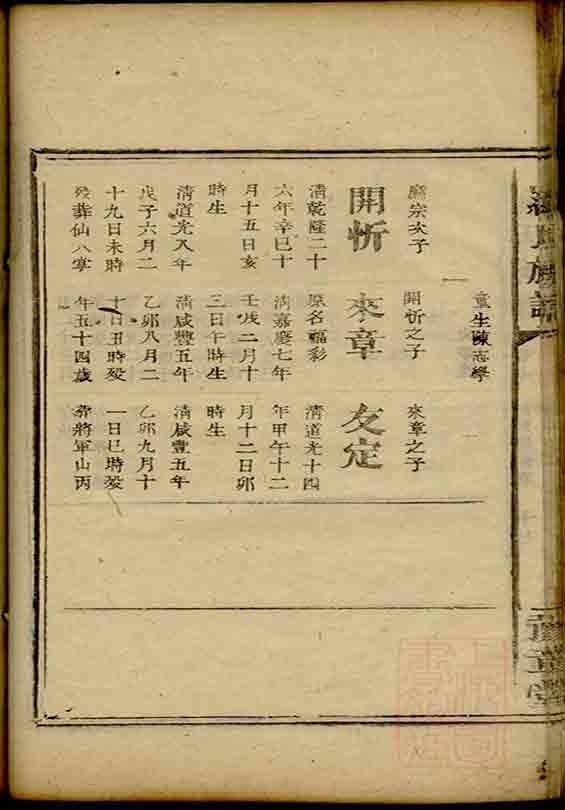 氏族譜
章堂
童生陳志學
宗次子
開忻
清乾隆二十
六年辛巳十
月十五日亥
時生
清道光八年
戊子六月二
十九日未時
歿葬仙八
開忻之子
來章
原名福彩
清嘉慶七年
壬戌二月十
三日午時生
清咸豐五年
乙卯八月二
十日丑時歿
年五十四歲
來章之子
友定
清道光十四
年甲午十二
月十二日卯
時生
清咸豐五年
乙卯九月十
一日巳時歿
葬將軍山丙